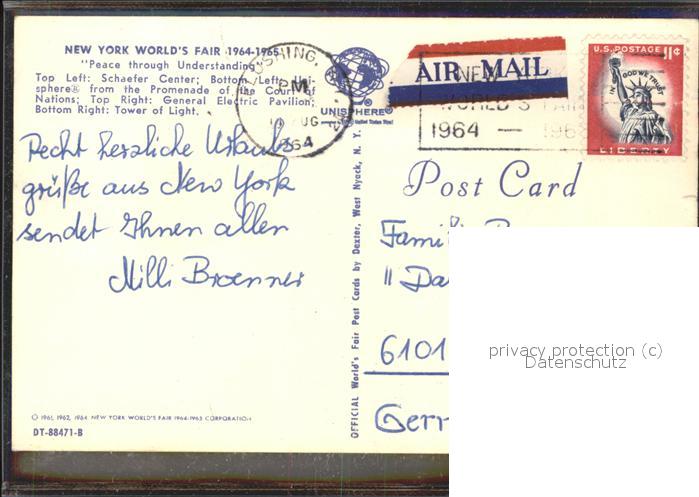 NEW YORK WORLD'S FAIR 1964-1965
"Peace through Understanding"
Top Left: Schaefer Center; Bottom Left: Uni-
sphere® from the Promenade of the Court of
Nations; Top Right: General Electric Pavilion;
Bottom Right: Tower of Light.
UNISPHERE®
FLUSHING, N.Y.
PM
AUG
1964
AIR MAIL
NEW
WORLD'S FAIR
1964 — 1965
U.S. POSTAGE 11¢
IN GOD WE TRUST
LIBERTY
Recht herzliche Urlaubs
grüße aus New York
sendet Ihnen allen
Milli Broenner
OFFICIAL World's Fair Post Cards by Dexter, West Nyack, N. Y.
Post Card
Famil
11 Da
6101
Gerr
privacy protection (c)
Datenschutz
© 1961, 1962, 1964 NEW YORK WORLD'S FAIR 1964-1965 CORPORATION
DT-88471-B